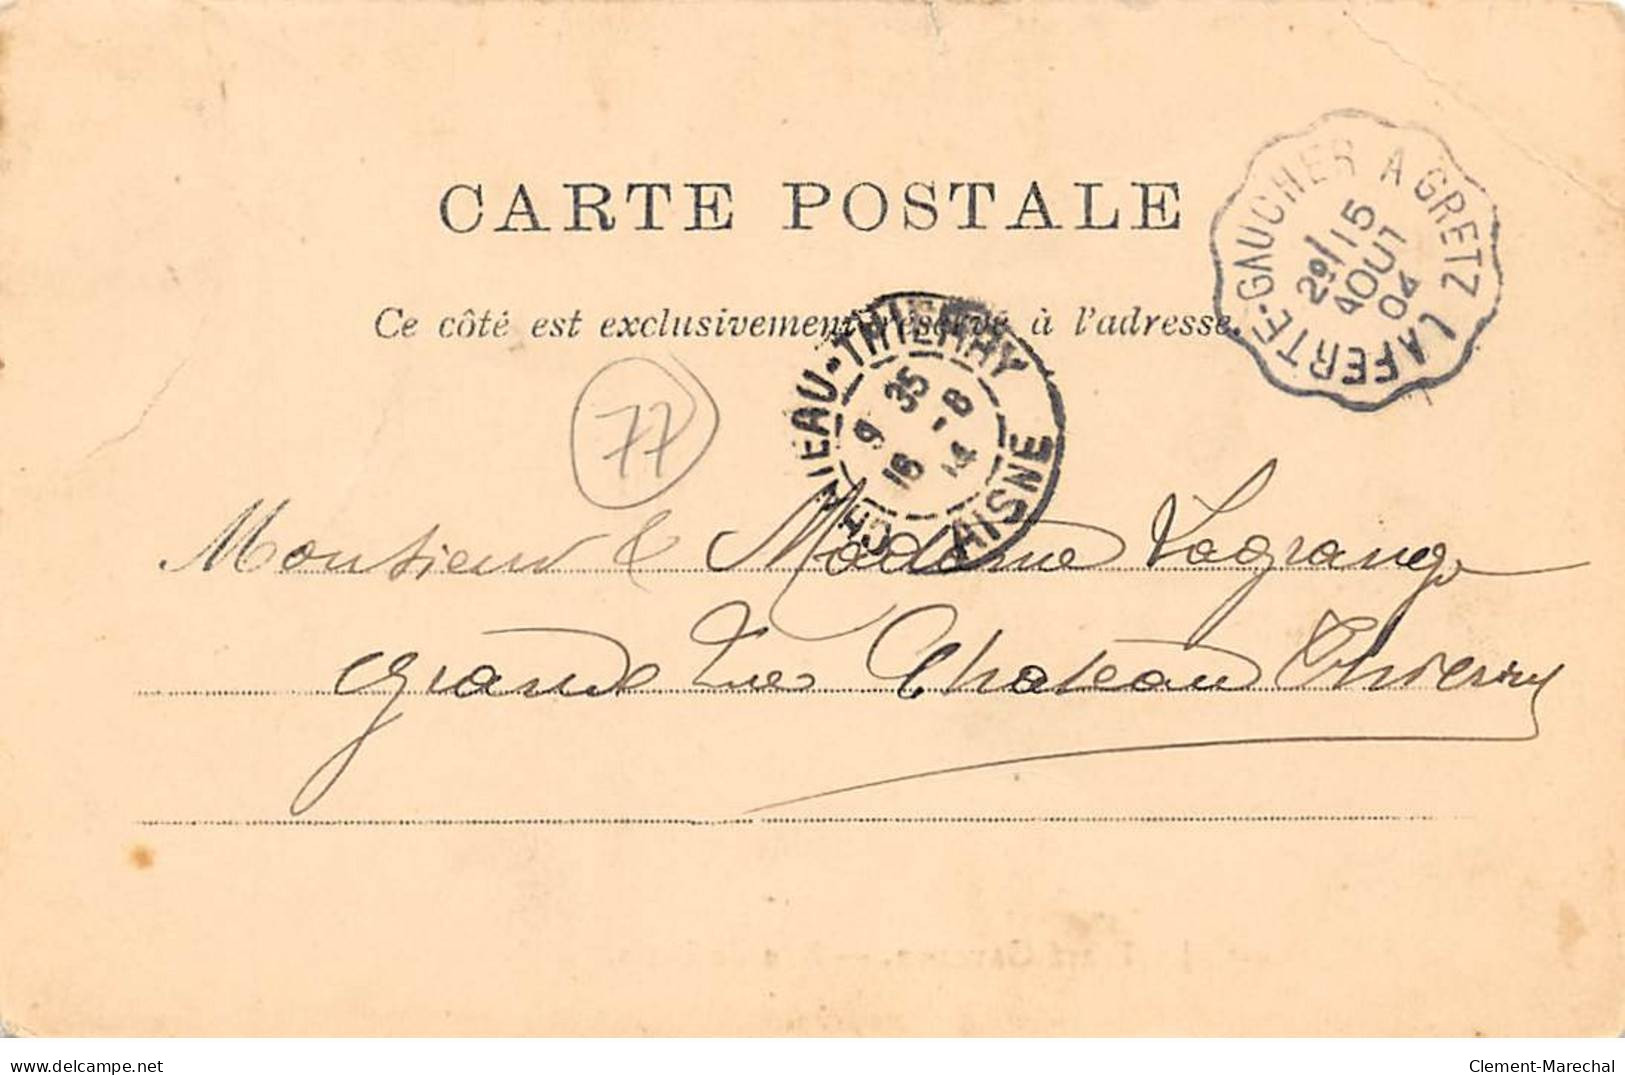 CARTE POSTALE
Ce côté est exclusivement réservé à l'adresse.
LAFERTE-GAUCHER A GRETZ
2º/15
AOUT
04
CHATEAU-THIERRY
AISNE
9 35
16 -8
77
Monsieur & Madame Lagrange
grande rue Chateau Thierry
www.delcampe.net
Clement-Marechal